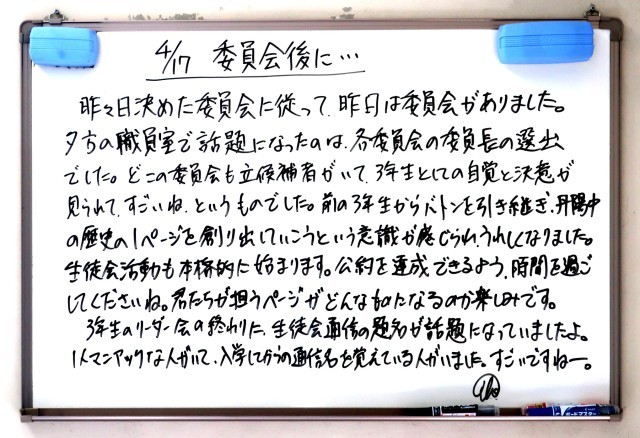 4/17 委員会後に…
昨々日決めた委員会に従って、昨日は委員会がありました。
夕方の職員室で話題になったのは、各委員会の委員長の選出
でした。どこの委員会も立候補者がいて、3年生としての自覚と決意が
見られて、すごいね、というものでした。前の3年生からバトンを引き継ぎ、丹陽中
の歴史の1ページを創り出していこうという意識が感じられ、うれしくなりました。
生徒会活動も本格的に始まります。公約を達成できるよう、時間を過ご
してくださいね。君たちが担うページがどんな物になるのか楽しみです。
3年生のリーダー会の終わりに、生徒会通信の題名が話題になっていましたよ。
1人マニアックな人がいて、入学してからの通信名を覚えている人がいました。すごいですねー。
ボードマスター